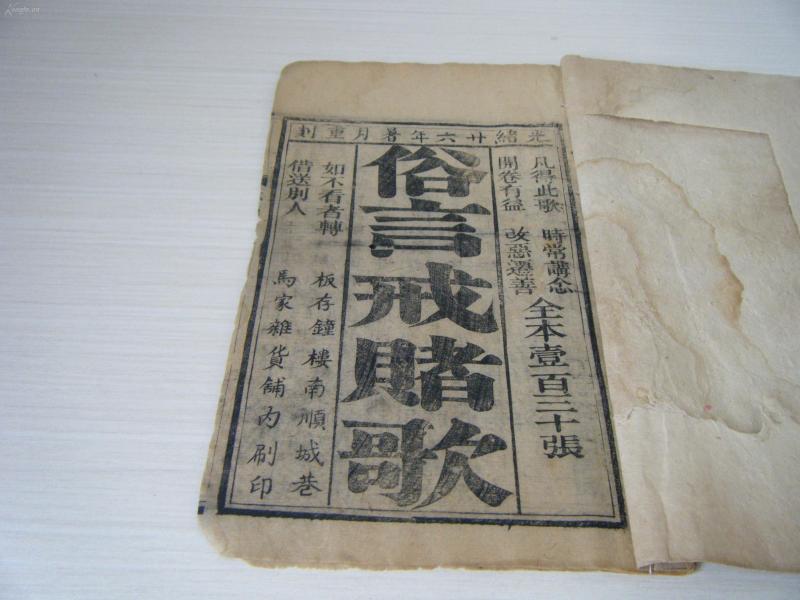 光緒廿六年暑月重刊
凡得此歌 時常講念
開卷有益 改惡遷善
全本壹百三十張
俗言戒賭歌
如不看者轉
借送別人
板存鐘樓南順城巷
馬家雜貨舖內刷印